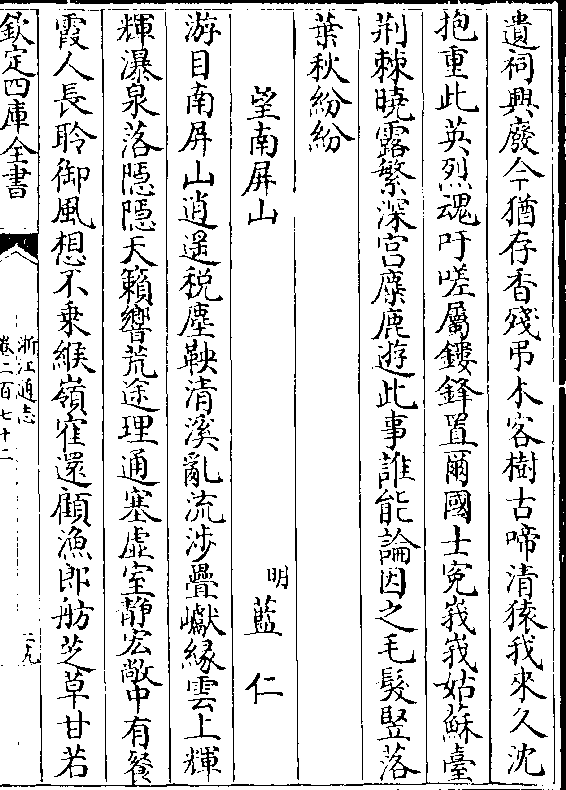 遺祠興廢今猶存香殘弔木客樹古啼清猿我來久沈
抱重此英烈魂吁嗟屬鏤鋒置爾國士寃峩峩姑蘇臺
荆棘曉露繁深宮麋鹿遊此事誰能論因之毛髮豎落
葉秋紛紛
望南屏山
明 藍仁
游目南屏山逍遥税塵鞅清溪亂流涉疊巘緣雲上輝
輝瀑泉落隱隱天籟響荒途理通塞虛室靜宏敞中有餐
霞人長聆御風想不乗緱嶺寉還顧漁郎舫芝草甘若
欽定四庫全書
浙江通志
卷二百七十二
二九